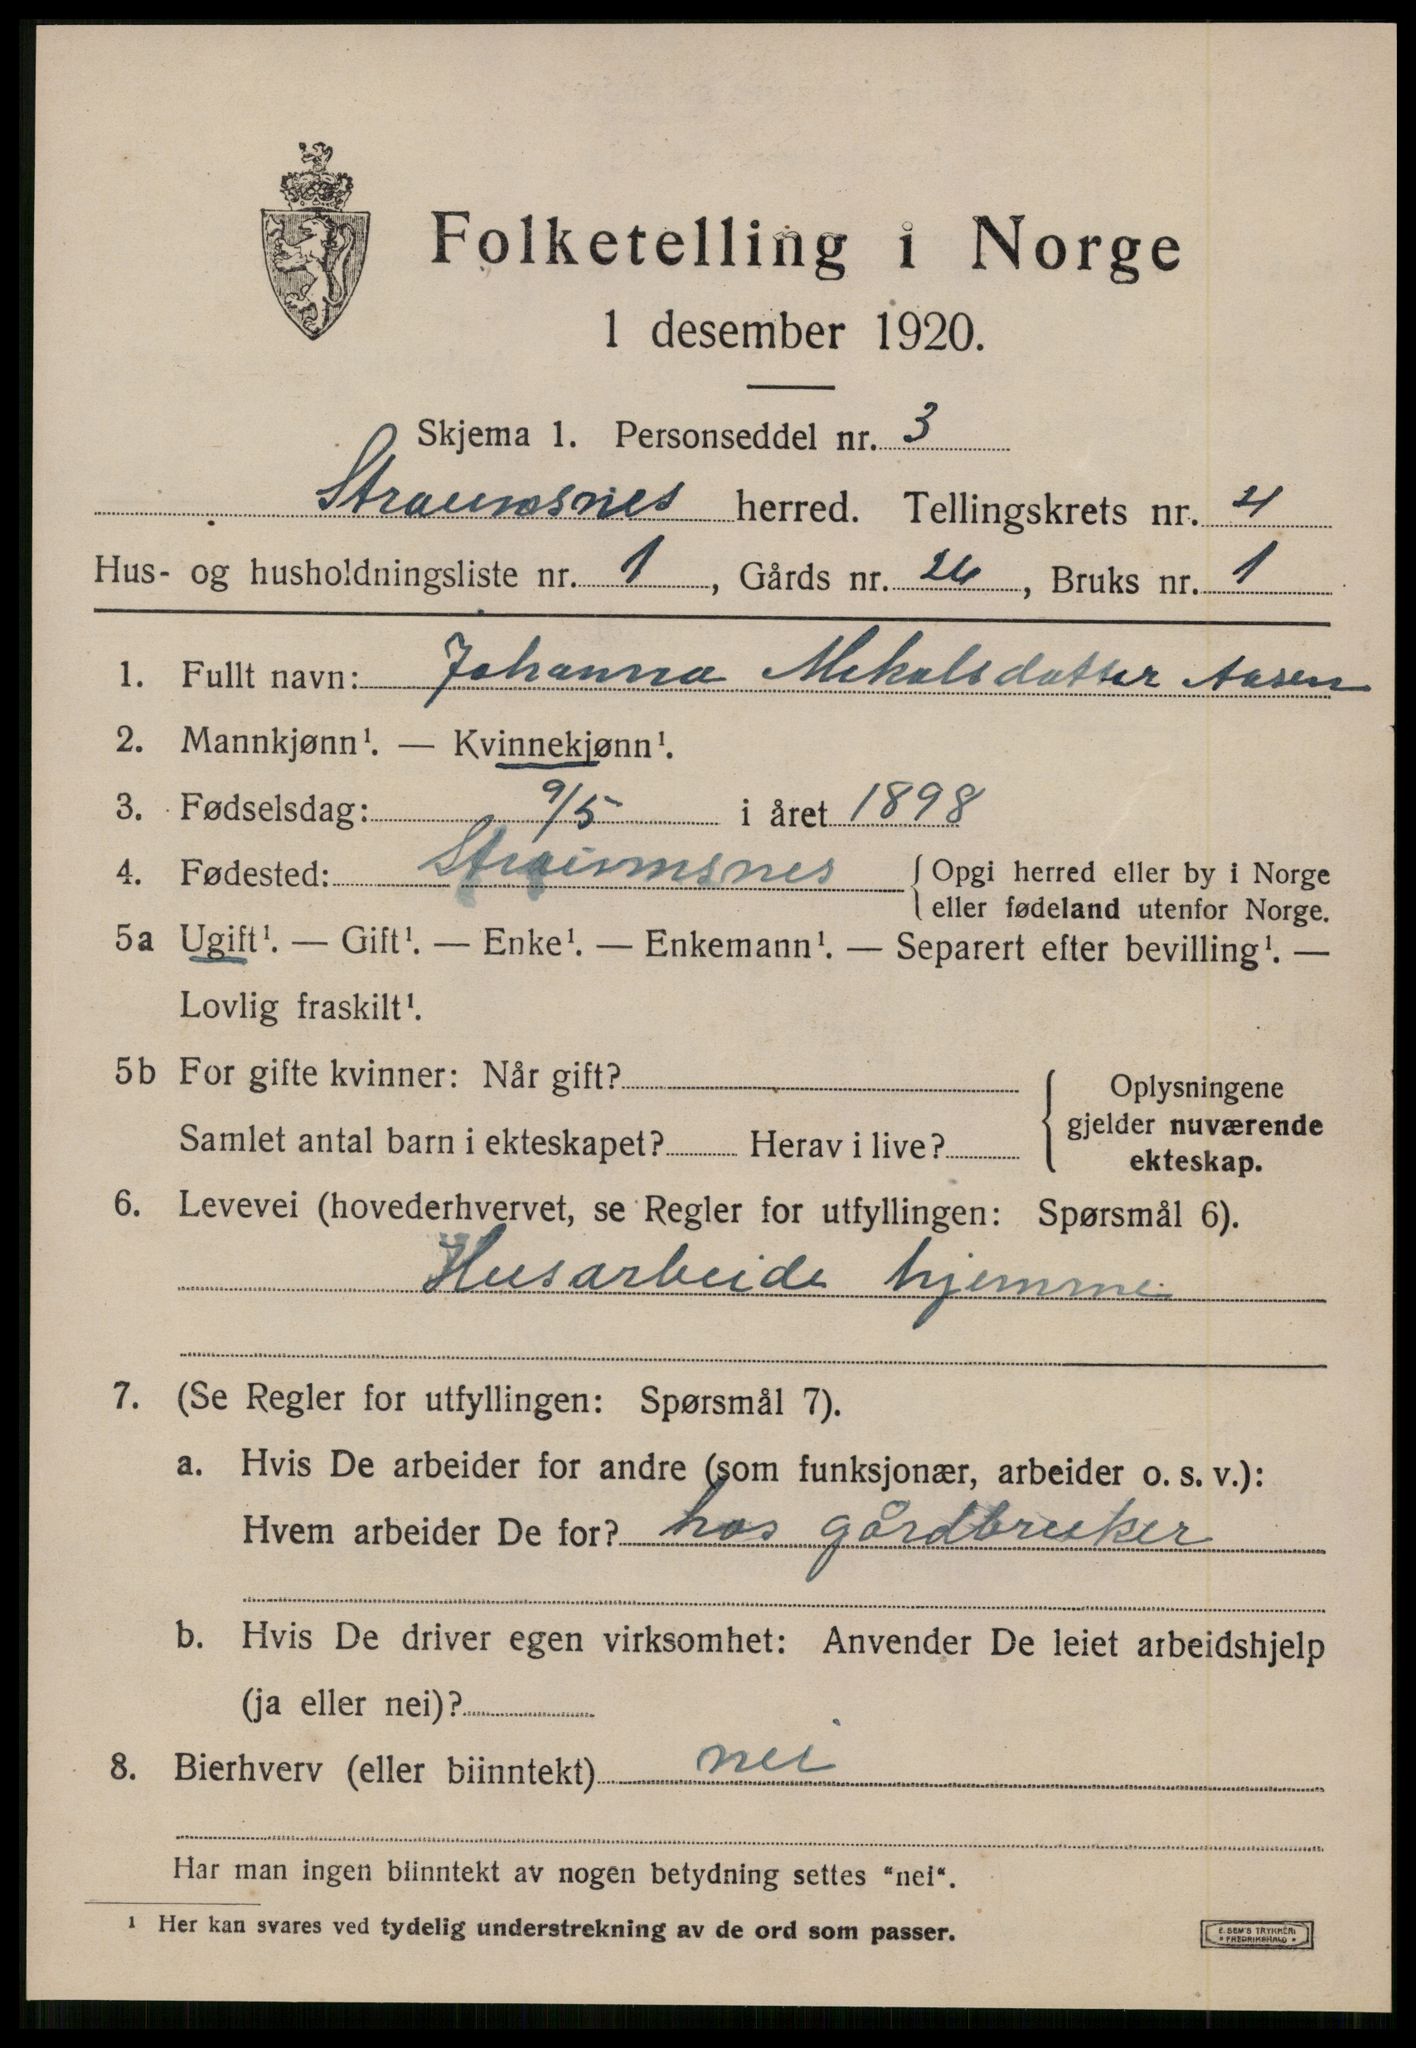 Folketelling i Norge
1 desember 1920.
Skjema 1. Personseddel nr. 3
Straumsnes herred. Tellingskrets nr. 4
Hus- og husholdningsliste nr. 1, Gårds nr. 26, Bruks nr. 1
1. Fullt navn: Johanna Mekalsdatter Aasen
2. Mannkjønn¹. — Kvinnekjønn¹.
3. Fødselsdag: 9/5 i året 1898
4. Fødested: Straumsnes { Opgi herred eller by i Norge
eller fødeland utenfor Norge.
5a Ugift¹. — Gift¹. — Enke¹. — Enkemann¹. — Separert efter bevilling¹. —
Lovlig fraskilt¹.
5b For gifte kvinner: Når gift?
Samlet antal barn i ekteskapet? Herav i live?
Oplysningene
gjelder nuværende
ekteskap.
6. Levevei (hovederhvervet, se Regler for utfyllingen: Spørsmål 6).
Husarbeide hjemme
7. (Se Regler for utfyllingen: Spørsmål 7).
a. Hvis De arbeider for andre (som funksjonær, arbeider o. s. v.):
Hvem arbeider De for? hos gårdbruker
b. Hvis De driver egen virksomhet: Anvender De leiet arbeidshjelp
(ja eller nei)?
8. Bierhverv (eller biinntekt) nei
Har man ingen biinntekt av nogen betydning settes "nei".
¹ Her kan svares ved tydelig understrekning av de ord som passer.
E. SEM'S TRYKKERI
* FREDRIKSHALD *